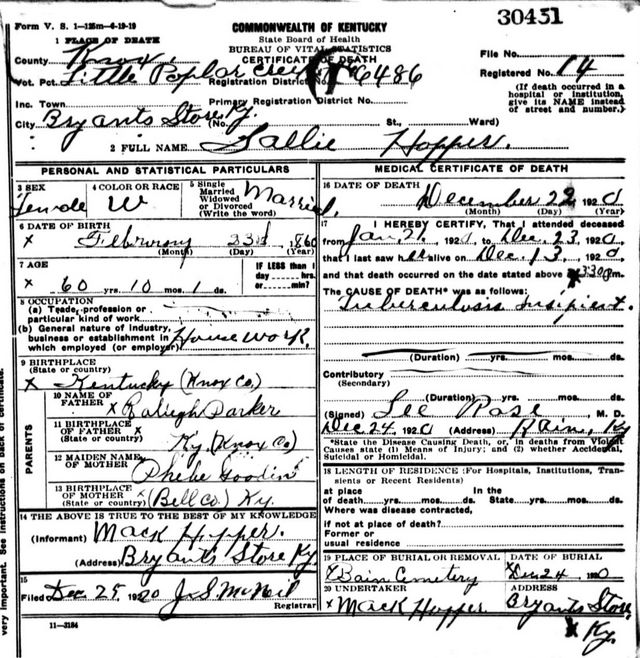 Form V. S. 1-125m-6-19-19
30451
COMMONWEALTH OF KENTUCKY
State Board of Health
BUREAU OF VITAL STATISTICS
CERTIFICATE OF DEATH
1 PLACE OF DEATH
County Knox
File No.
Vot. Pct. Little Poplar Creek Registration District No. 6486
Registered No. 14
(If death occurred in a hospital or institution, give its NAME instead of street and number.)
Inc. Town Primary Registration District No.
City Bryants Store, Ky. (No. St., Ward)
2 FULL NAME Sallie Hopper.
PERSONAL AND STATISTICAL PARTICULARS
3 SEX Female
4 COLOR OR RACE W
5 Single Married Widowed or Divorced (Write the word) Married.
6 DATE OF BIRTH
x February 23d, 1860
(Month) (Day) (Year)
7 AGE
x 60 yrs. 10 mos. 1 ds.
IF LESS than 1 day----hrs. or-----min?
8 OCCUPATION
(a) Trade, profession or particular kind of work
(b) General nature of Industry, business or establishment in which employed (or employer) House work.
9 BIRTHPLACE
(State or country)
x Kentucky (Knox Co.)
PARENTS
10 NAME OF FATHER x Raliegh Parker
11 BIRTHPLACE OF FATHER x
(State or country) Ky. (Knox Co)
12 MAIDEN NAME OF MOTHER Phebe Goodin
13 BIRTHPLACE OF MOTHER x
(State or country) (Bell Co) Ky.
14 THE ABOVE IS TRUE TO THE BEST OF MY KNOWLEDGE
(Informant) Mack Hopper.
(Address) Bryants Store Ky.
15
Filed Dec 25 1920 J. S. McNeil
Registrar
11-3184
MEDICAL CERTIFICATE OF DEATH
16 DATE OF DEATH
December 22 1920
(Month) (Day) (Year)
17 I HEREBY CERTIFY, That I attended deceased
from Jan. 21, 1920, to Dec. 23, 1920,
that I last saw her alive on Dec. 13, 1920
and that death occurred on the date stated above at 3:30 p.m.
The CAUSE OF DEATH* was as follows:
Tuberculosis Insipient.
(Duration) yrs. mos. ds.
Contributory
(Secondary)
(Duration) yrs. mos. ds.
(Signed) Lee Rose, M. D.
Dec 24, 1920 (Address) Bain, Ky
*State the Disease Causing Death, or, in deaths from Violent Causes state (1) Means of Injury; and (2) whether Accidental, Suicidal or Homicidal.
18 LENGTH OF RESIDENCE (For Hospitals, Institutions, Transients or Recent Residents)
at place of death yrs. mos. ds. In the State yrs. mos. ds.
Where was disease contracted,
if not at place of death?
Former or usual residence
19 PLACE OF BURIAL OR REMOVAL
x Bain Cemetery
DATE OF BURIAL
x Dec 24 1920
20 UNDERTAKER
x Mack Hopper
ADDRESS
Bryants Store,
x Ky.
very important. See instructions on back of certificate.